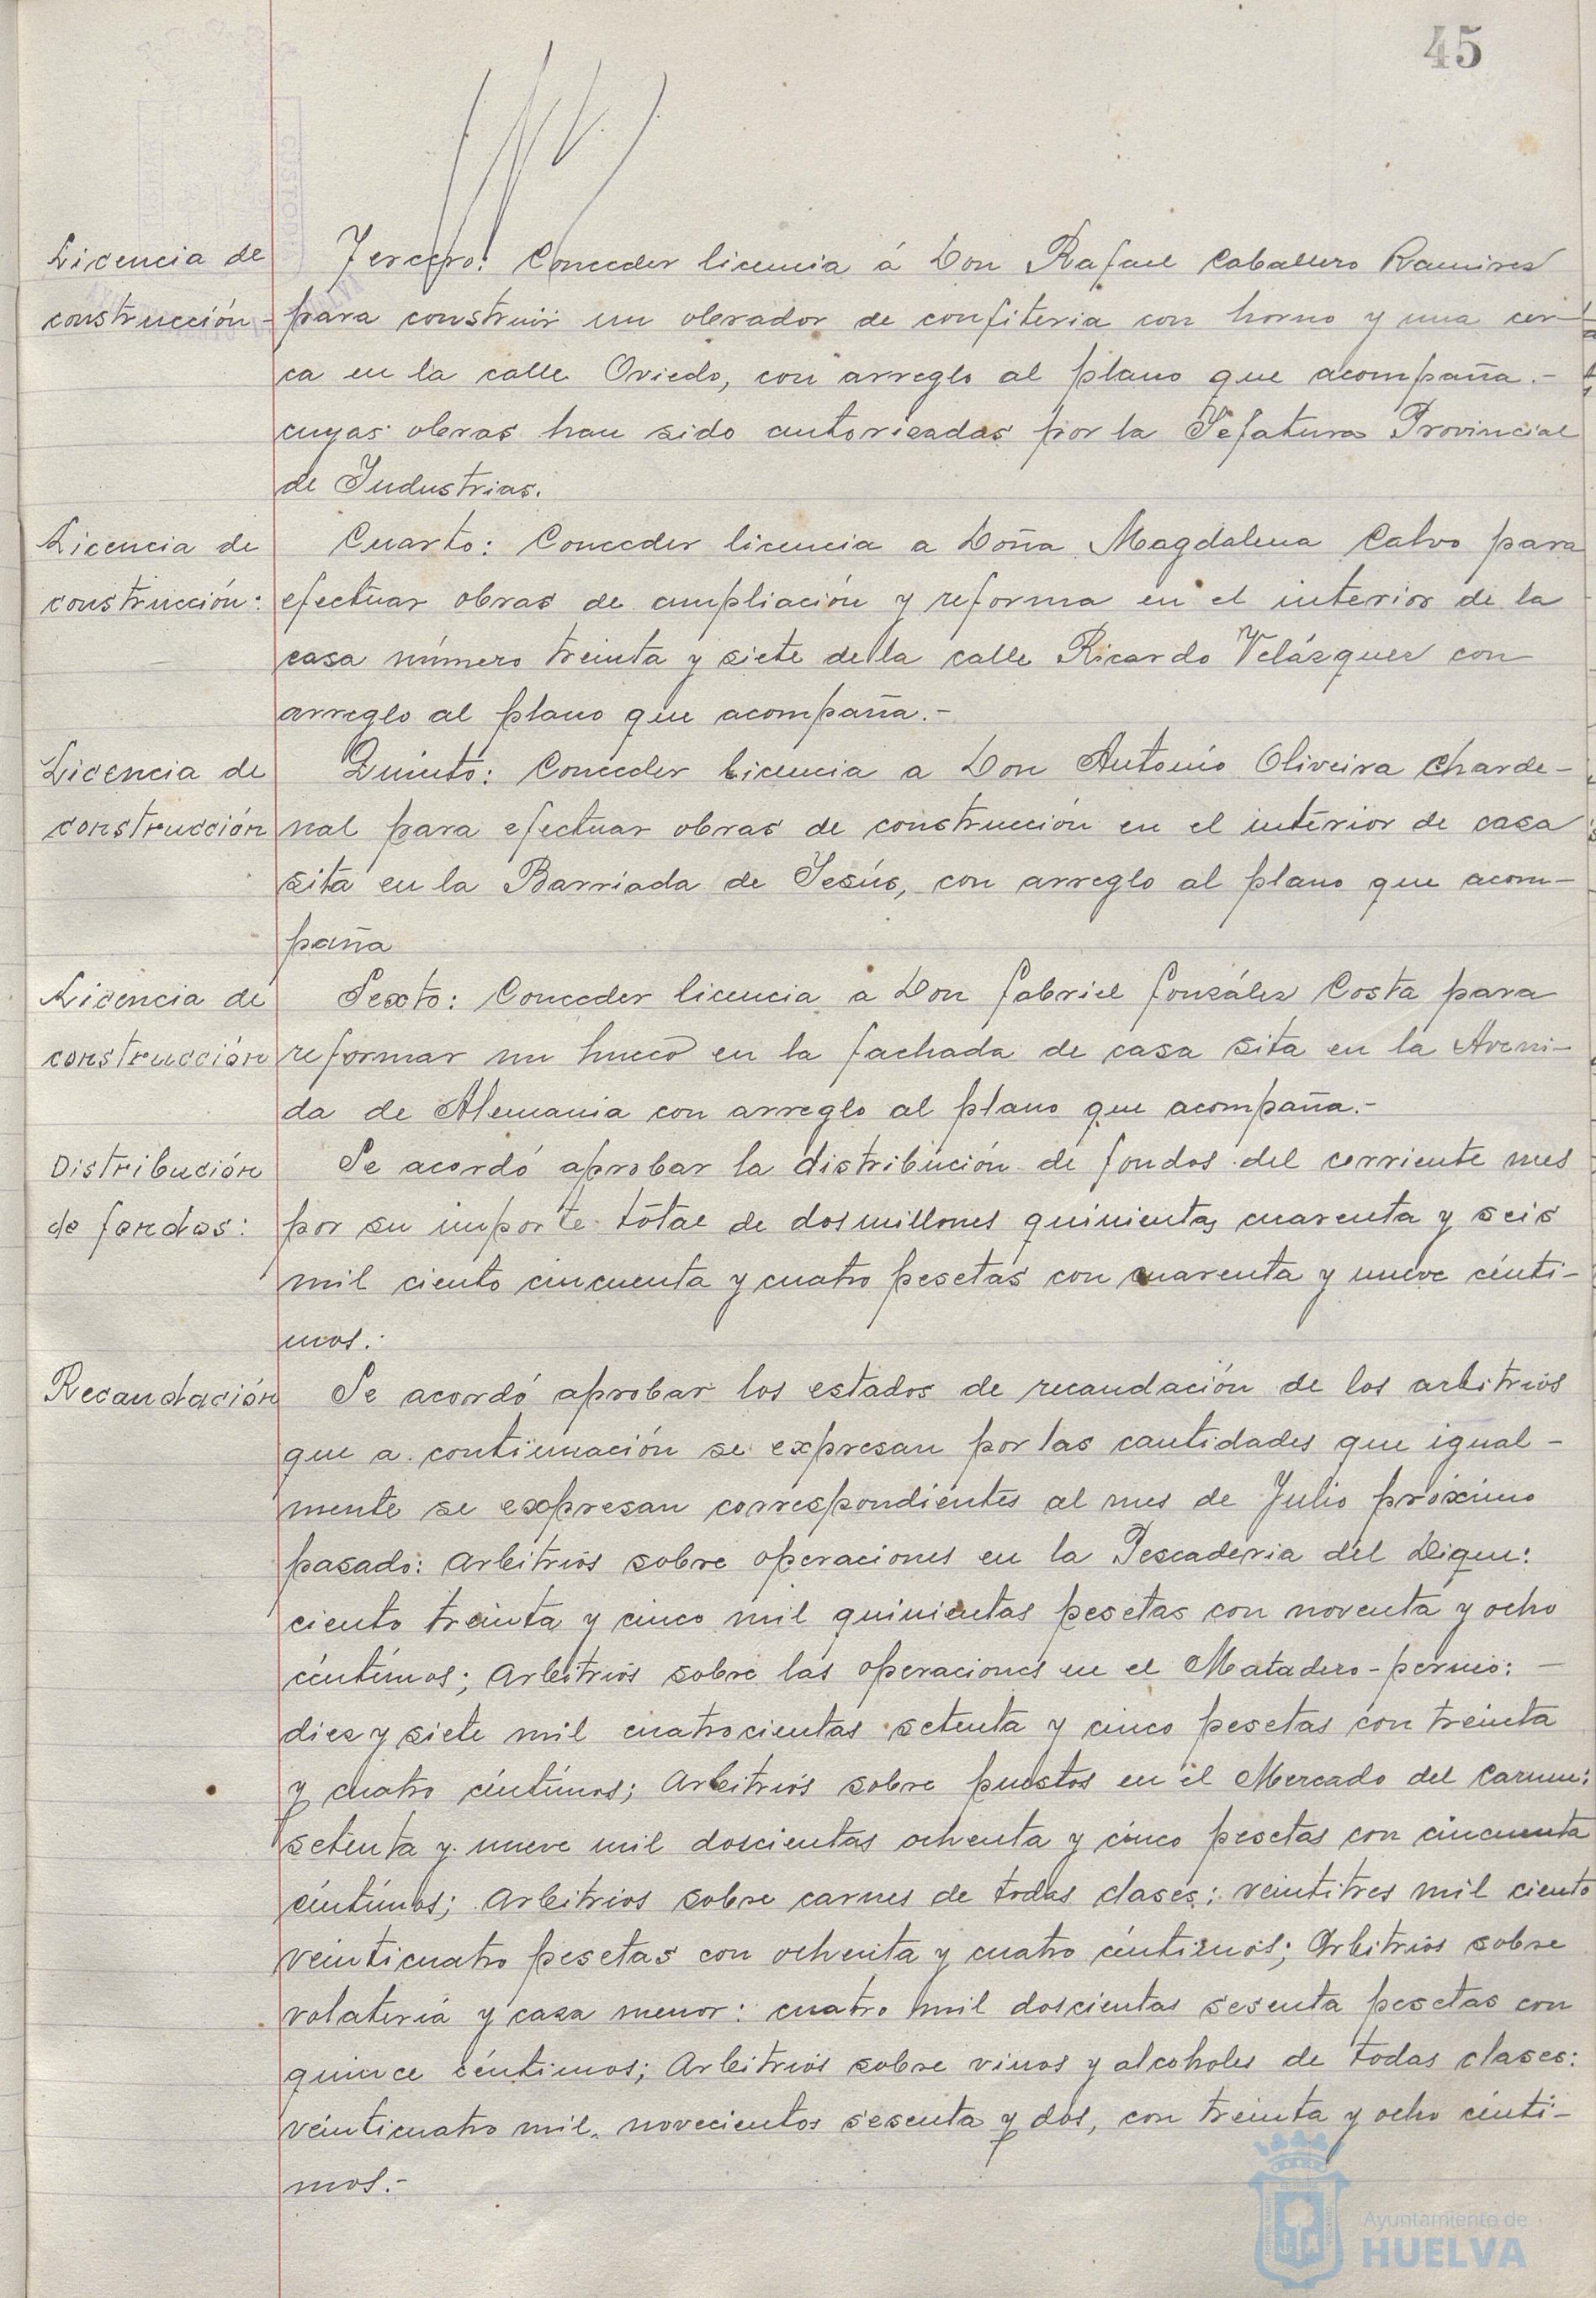 45
Licencia de
construcción-
Tercero: Conceder licencia á Don Rafael Caballero Ramirez
para construir un obrador de confiteria con horno y una cer-
ca en la calle Oviedo, con arreglo al plano que acompaña.-
cuyas obras han sido autorizadas por la Jefatura Provincial
de Industrias.
Licencia de
construcción:
Cuarto: Conceder licencia a Doña Magdalena Calvo para
efectuar obras de ampliación y reforma en el interior de la
casa número treinta y siete de la calle Ricardo Velázquez con
arreglo al plano que acompaña.-
Licencia de
construcción
Quinto: Conceder licencia a Don Antonio Oliveira Charde-
nal para efectuar obras de construcción en el interior de casa
sita en la Barriada de Jesús, con arreglo al plano que acom-
paña
Licencia de
construcción
Sexto: Conceder licencia a Don Gabriel González Costa para
reformar un hueco en la fachada de casa sita en la Aveni-
da de Alemania con arreglo al plano que acompaña.-
Distribución
de fondos:
Se acordó aprobar la distribución de fondos del corriente mes
por su importe total de dosmillones quinientas cuarenta y seis
mil ciento cincuenta y cuatro pesetas con cuarenta y nueve cénti-
mos.-
Recaudación
Se acordó aprobar los estados de recaudación de los arbitrios
que a continuación se expresan por las cantidades que igual-
mente se expresan correspondientes al mes de Julio próximo
pasado: Arbitrios sobre operaciones en la Pescaderia del Dique:
ciento treinta y cinco mil quinientas pesetas con noventa y ocho
céntimos; Arbitrios sobre las operaciones en el Matadero-permio:-
diez y siete mil cuatrocientas setenta y cinco pesetas con treinta
y cuatro céntimos; Arbitrios sobre puestos en el Mercado del Carmen:
setenta y nueve mil doscientas ochenta y cinco pesetas con cincuenta
céntimos; Arbitrios sobre carnes de todas clases: veintitres mil ciento
veinticuatro pesetas con ochenta y cuatro céntimos; Arbitrios sobre
volatería y caza menor: cuatro mil doscientas sesenta pesetas con
quince céntimos; Arbitrios sobre vinos y alcoholes de todas clases:
veinticuatro mil novecientos sesenta y dos, con treinta y ocho cénti-
mos.-
Ayuntamiento de
HUELVA